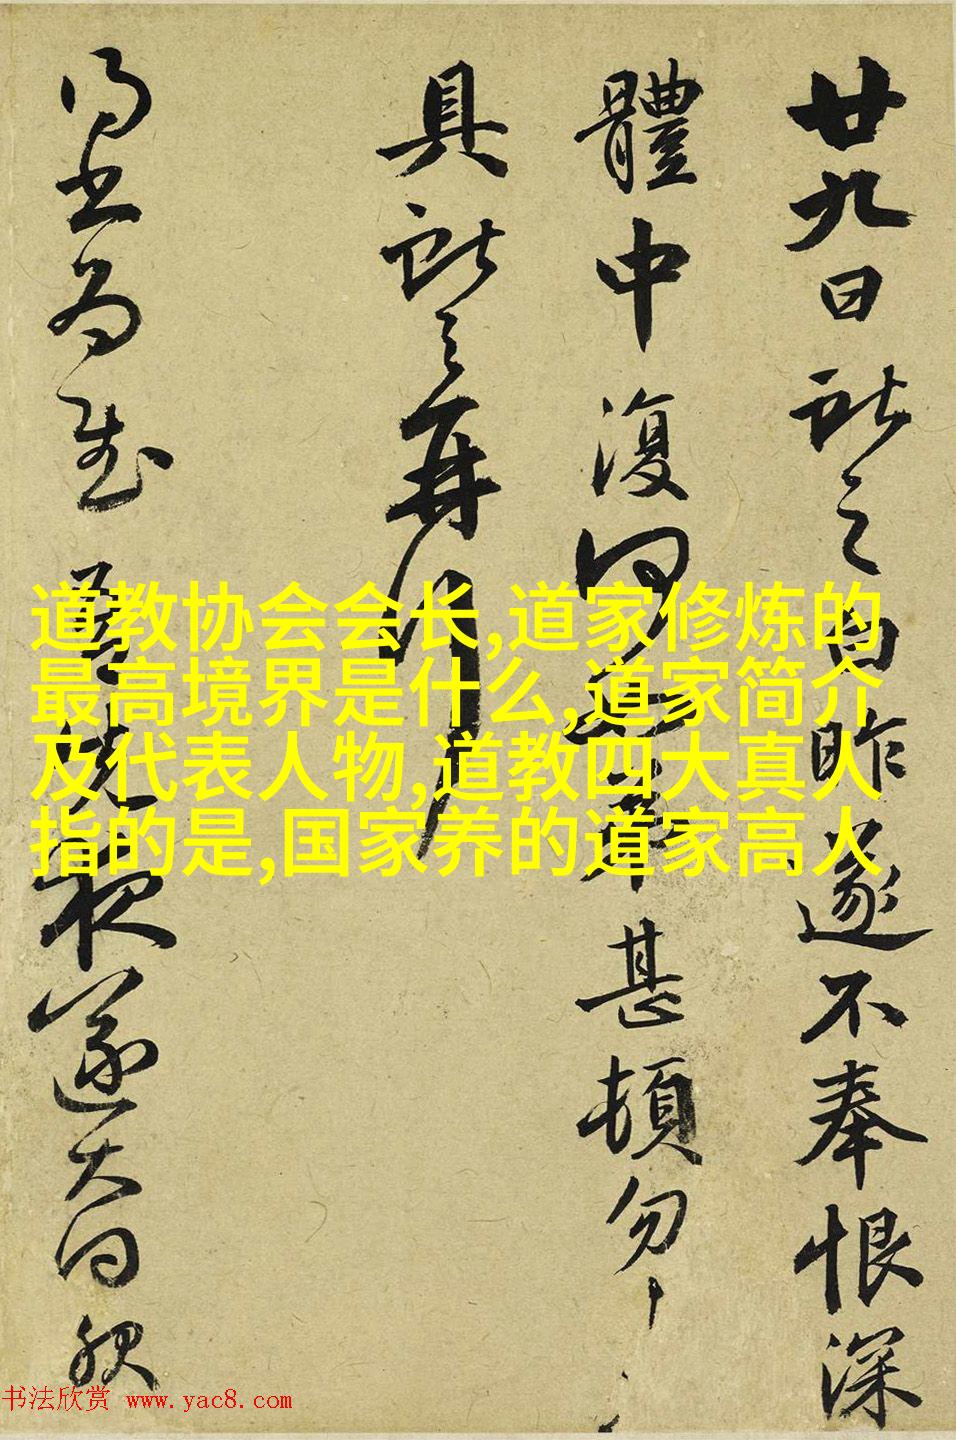 廿九日獻之白昨遂不奉恨深
體中復何如弟甚頓勿
具獻之再拜
遂大
道教协会会长,道家修炼的
最高境界是什么,道家简介
及代表人物,道教四大真人
指的是,国家养的道家高人
书法欣赏 www.yac8.com